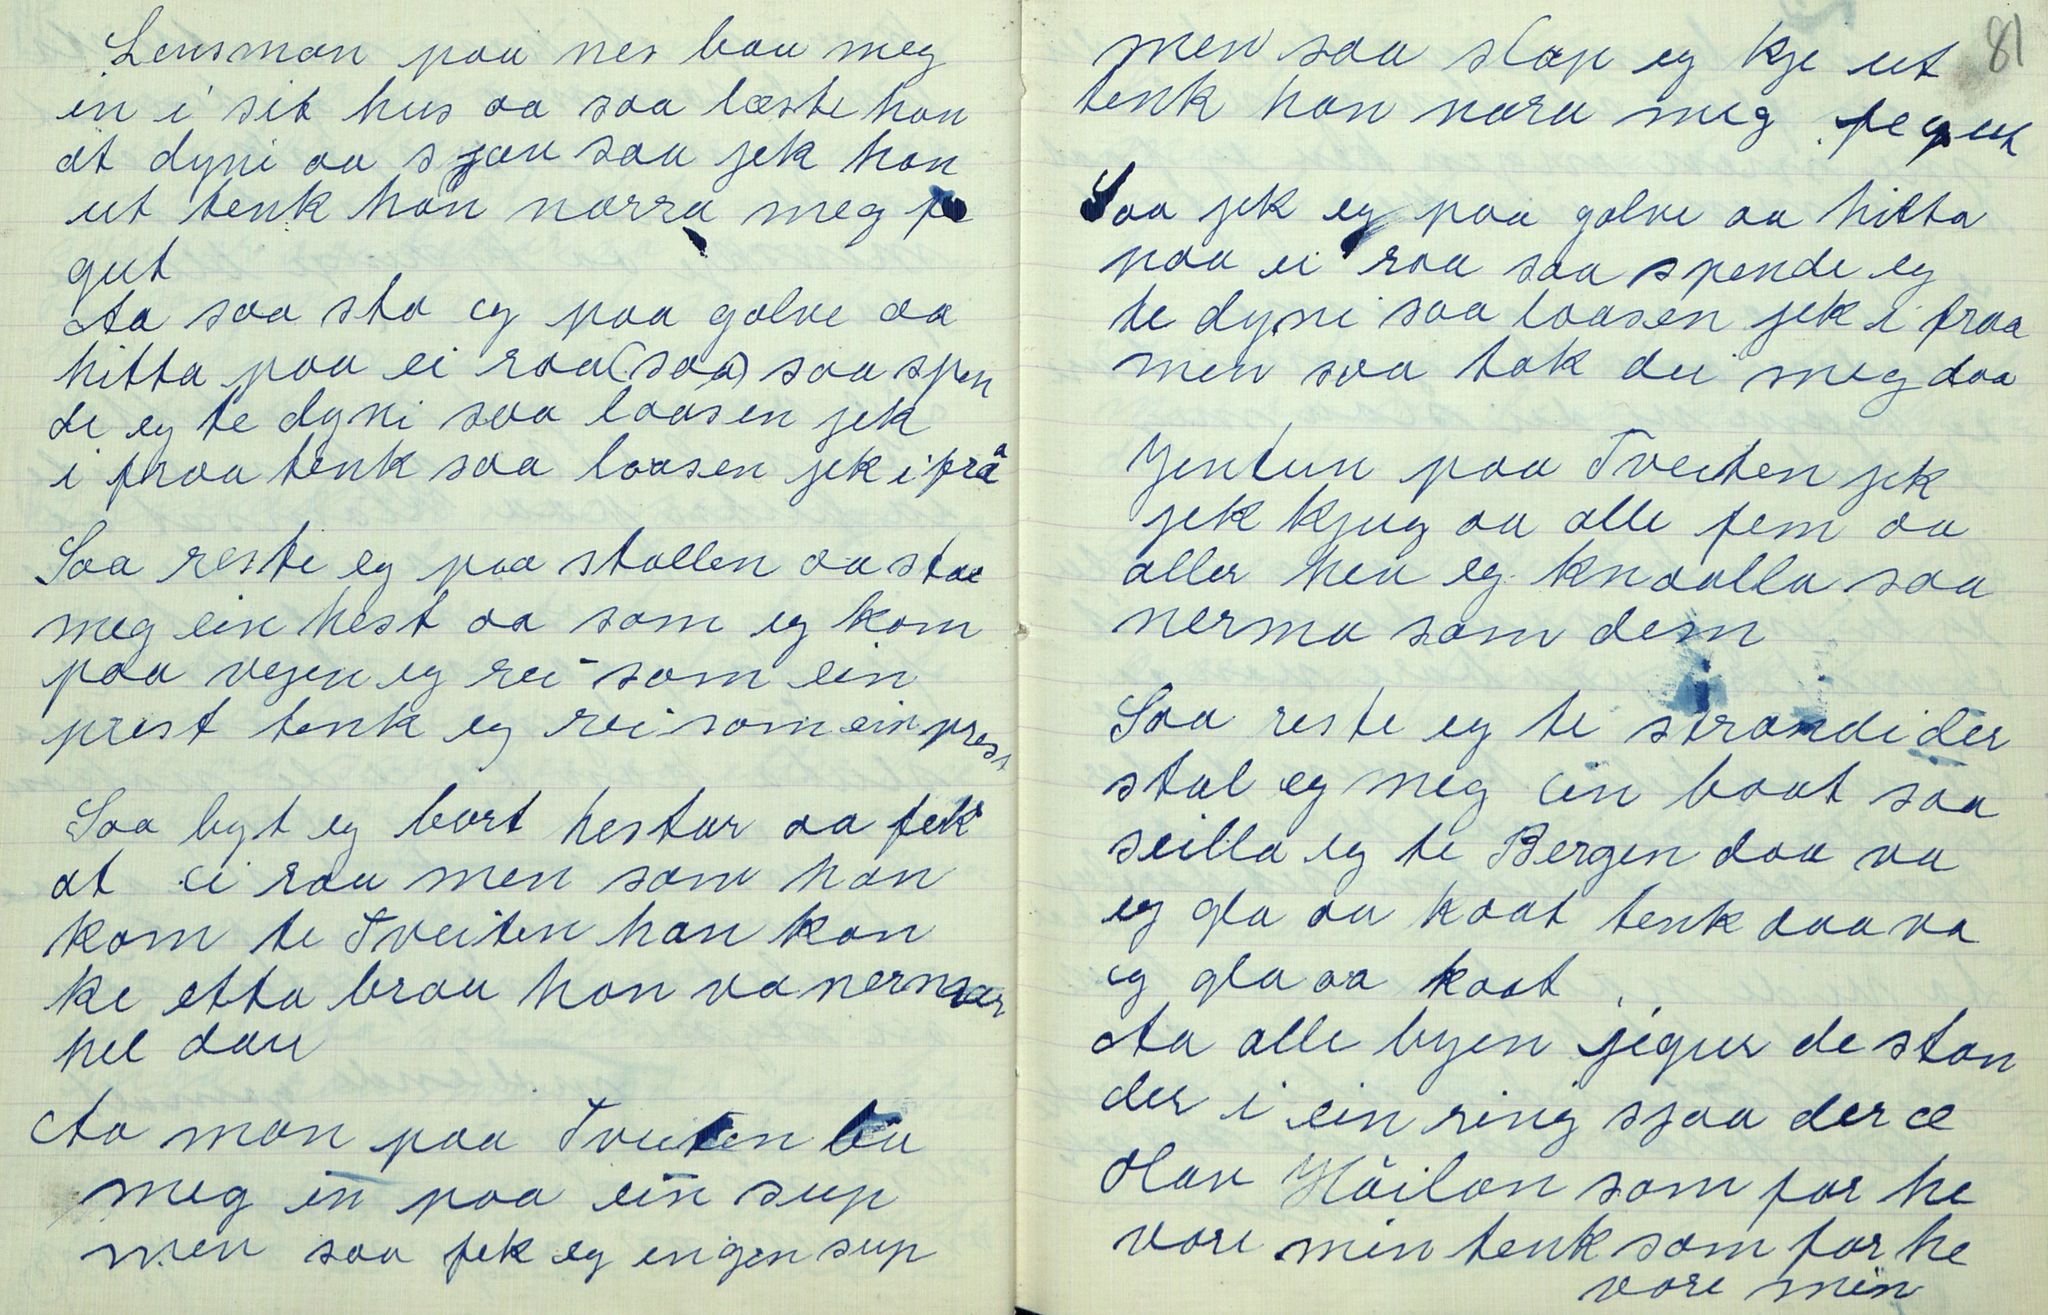 Lensman paa nes baa meg
in i sit hus aa saa læste han
at dyni aa sjøu saa jek han
ut tenk han narra meg fe
gut
Aa saa sto eg paa golve aa
hitta paa ei raa (saa) saa spen
de eg te dyni saa laasen jek
i fraa tenk saa laasen jek i frå
Saa reste eg paa stallen aa stal
meg ein hest aa som eg kom
paa vejen eg rei som ein
prest tenk eg rei som ein prest
Saa byt eg bort hestar aa fek
at ei raa men som han
kom te Tveiten han kan
ke etta braa han va nermar
hel dau
Aa man paa Tveiten ba
meg in paa ein sup
men saa fek eg engen sup
81
men saa slap eg kje ut
tenk han nara meg fe gut
Saa jek eg paa golve aa hitta
paa ei raa saa spende eg
te dyni saa laasen jek i fraa
men saa tok dei meg daa
Jentun paa Tveiten jek
jek kjug aa alle fem aa
aller hea eg knaalla saa
nerma som dem
Saa reste eg te strandi der
stal eg meg ein baat saa
seilla eg te Bergen daa va
eg gla aa kaat tenk daa va
eg gla aa kaat
Aa alle byen jegur de stan
der i ein ring sjaa der æ
Olav Håilan som far he
vore min tenk som far he
vore min